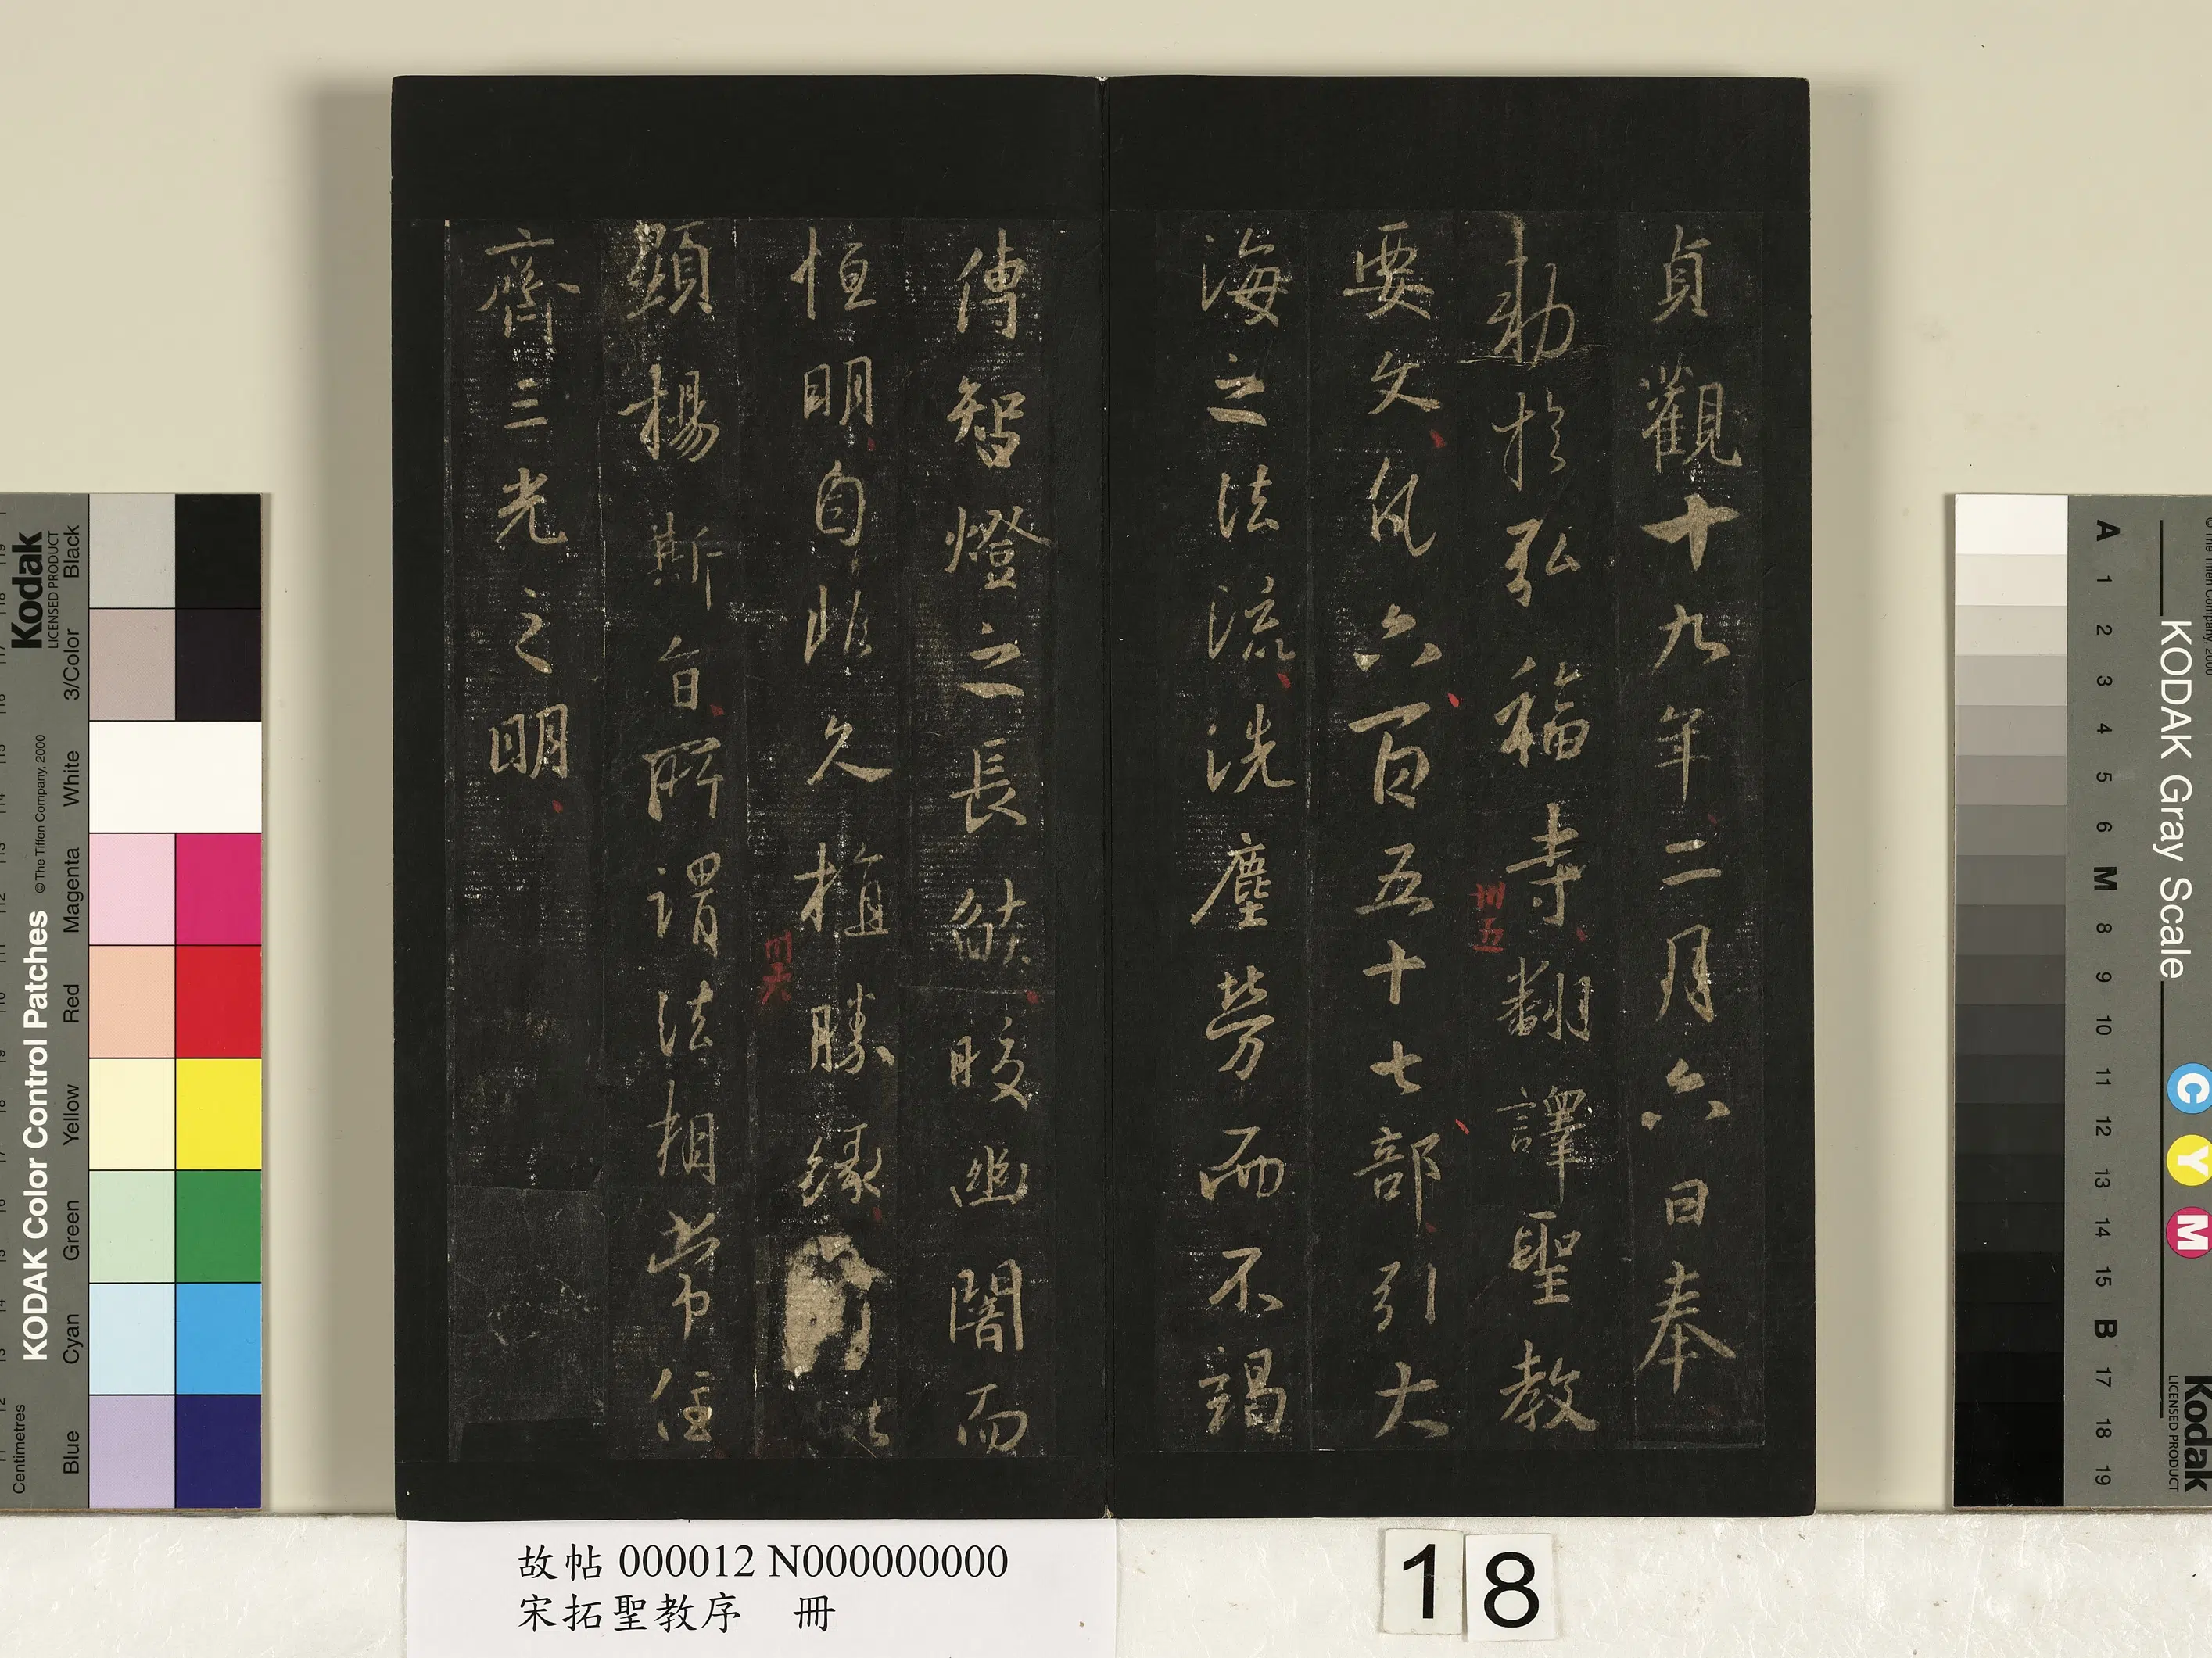 貞觀十九年二月六日奉
勅於弘福寺翻譯聖教
卅五
要文凡六百五十七部引大
海之法流洗塵勞而不竭
傳智燈之長焰皎幽闇而
恒明自非久植勝緣以
卅六
顯揚斯旨所謂法相常住
齊三光之明
故帖 000012 N000000000
宋拓聖教序 冊
18
Kodak
LICENSED PRODUCT
KODAK Color Control Patches
©The Tiffen Company, 2000
Centimetres
Blue Cyan Green Yellow Red Magenta White 3/Color Black
KODAK Gray Scale
A 1 2 3 4 5 6 M 8 9 10 11 12 13 14 15 B 17 18 19
C Y M
Kodak
LICENSED PRODUCT